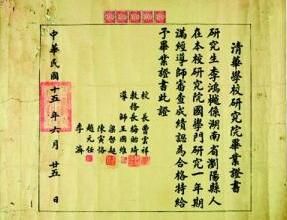 清華學校研究院畢業證書
研究生李鴻樾係湖南省瀏陽縣人
在本校研究院國學門研究一年期
滿經導師審查成績認為合格特給
予畢業證書此證
校長曹雲祥
教務長梅貽琦
導師王國維
梁啟超
陳寅恪
趙元任
李濟
中華民國十五年六月廿五日